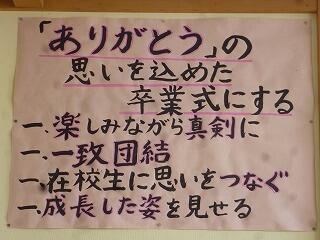 「ありがとう」の
思いを込めた
卒業式にする
一、楽しみながら真剣に
一、一致団結
一、在校生に思いをつなぐ
一、成長した姿を見せる